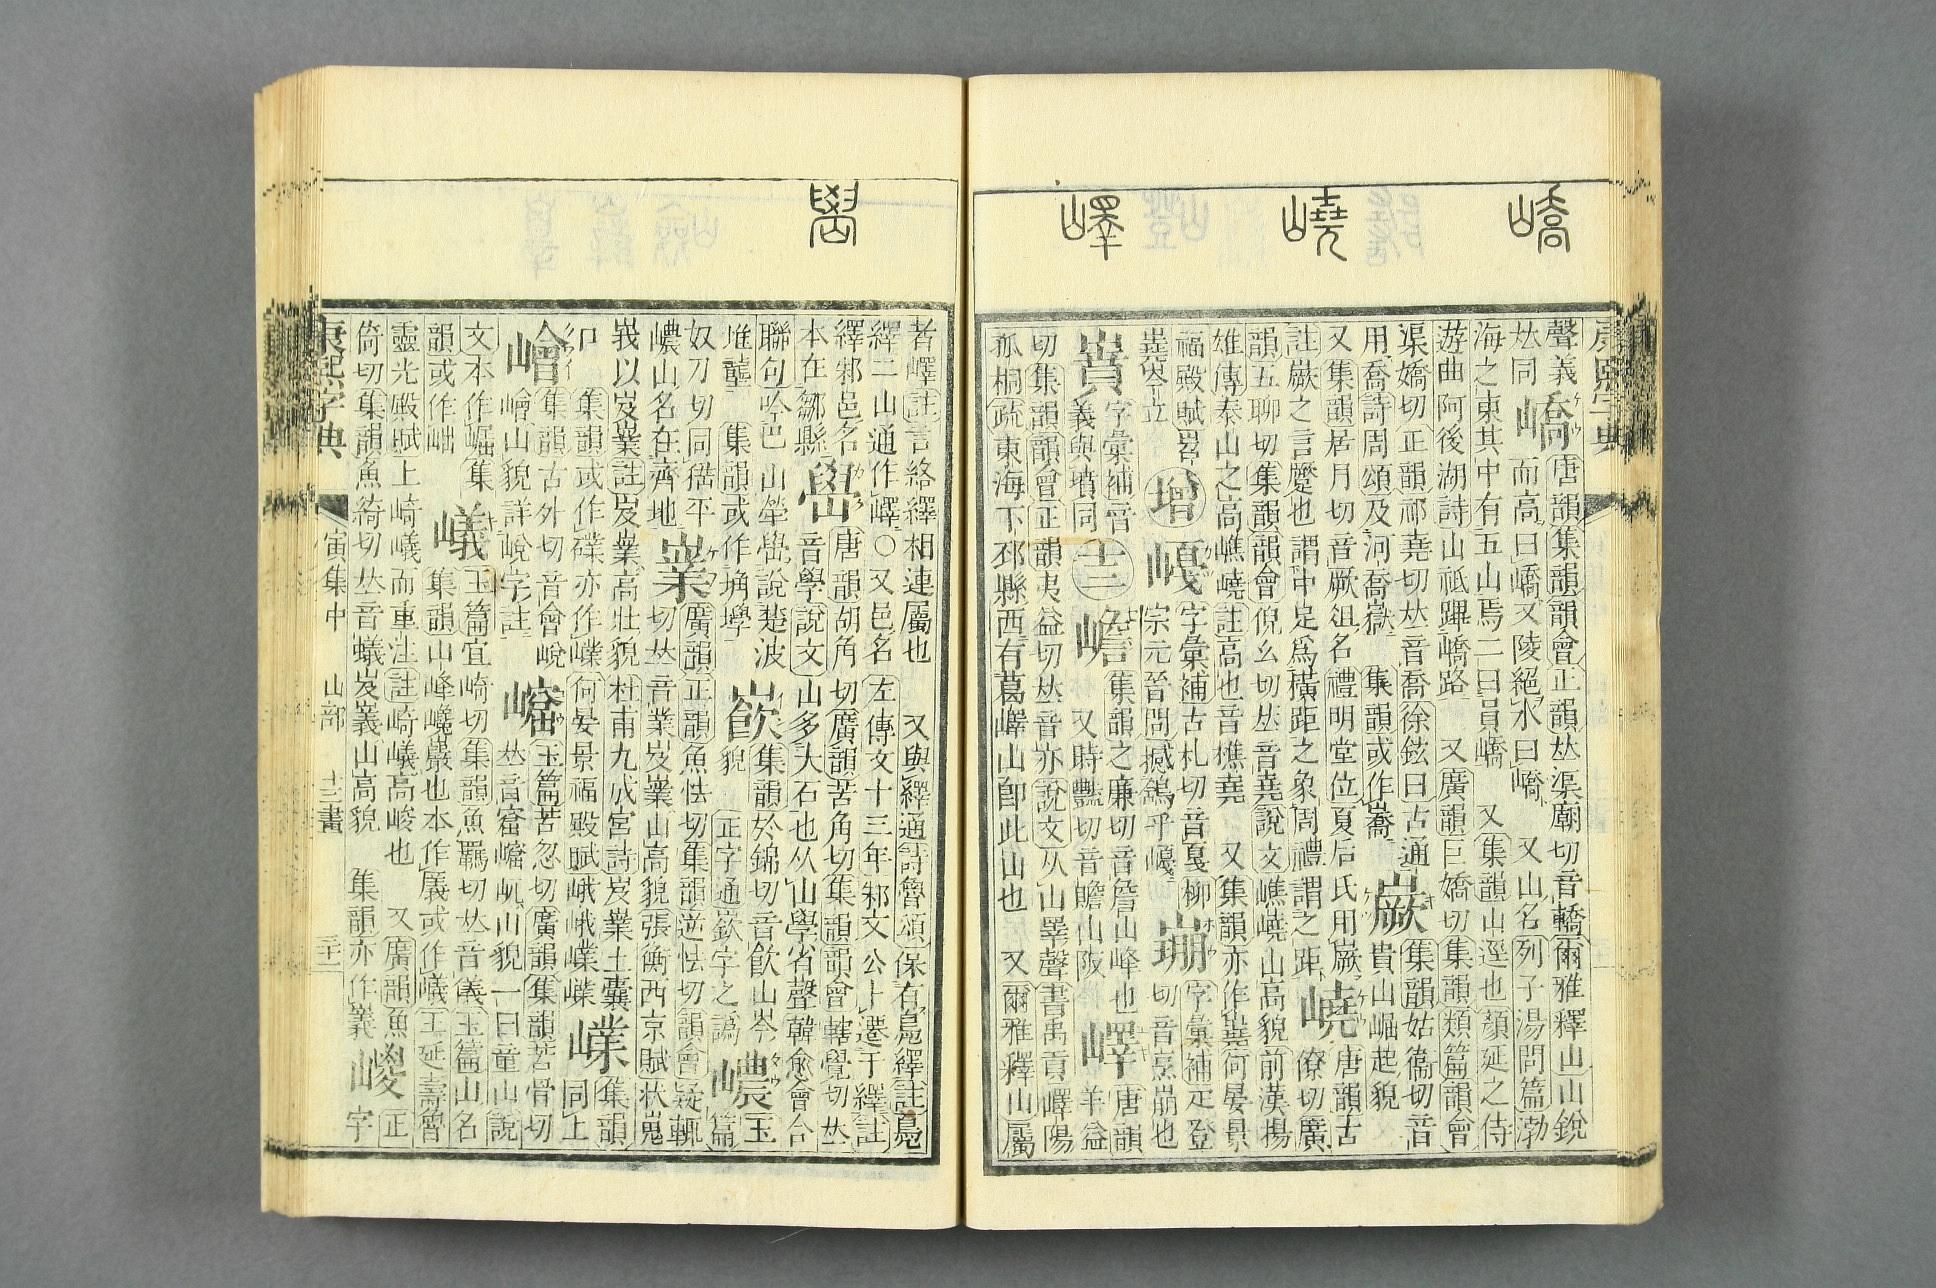 嶠
嶢
嶧
嶨
康熙字典
聲義
𠀤同嶠唐韻集韻韻會正韻𠀤渠廟切音轎爾雅釋山山銳
而高曰嶠又陵絕水曰嶠 又山名列子湯問篇渤
海之東其中有五山焉二曰員嶠 又集韻山逕也顏延之侍
遊曲阿後湖詩山祇蹕嶠路 又廣韻巨嬌切集韻類篇韻會
渠嬌切正韻祁堯切𠀤音喬徐鉉曰古通
用喬詩周頌及河喬嶽 集韻或作
嶡集韻姑衞切音
貴山崛起貌
又集韻居月切音厥俎名禮明堂位夏后氏用嶡
註嶡之言蹷也謂中足爲橫距之象周禮謂之距
嶢唐韻古
僚切廣
韻五聊切集韻韻會倪幺切𠀤音堯說文嶕嶢山高貌前漢揚
雄傳泰山之高嶕嶢註高也音樵堯 又集韻亦作嶤何晏景
福殿賦
增嘠字彙補古札切音戛柳
宗元晉問撼鶴乎嘠
字彙補疋登
切音烹崩也
字彙補音
義與墳同
十三嶦集韻之廉切音詹山峰也
又時豔切音贍山阪
嶧唐韻
羊益
切集韻韻會正韻夷益切𠀤音亦說文从山睪聲書禹貢嶧陽
孤桐疏東海下邳縣西有葛嶧山卽此山也 又爾雅釋山屬
者嶧註言絡繹相連屬也 又與繹通詩魯頌保有鳧繹註鳧
繹二山通作嶧〇又邑名左傳文十三年邾文公卜遷于繹註
繹邾邑名
本在鄒縣
嶨唐韻胡角切廣韻苦角切集韻韻會轄覺切𠀤
音學說文山多大石也从山學省聲韓愈會合
聯句吟巴山犖嶨說楚波
堆壟 集韻或作埆壆
集韻於錦切音飮山岑
貌 正字通嶔字之譌
㠢玉
篇
奴刀切同峱平
㠢山名在齊地
嶪廣韻正韻魚怯切集韻逆怯切韻會疑輒
切𠀤音業岌嶪山高貌張衡西京賦狀嵬
峩以岌嶪註岌嶪高壯貌杜甫九成宮詩岌嶪土囊
口 集韻或作礏亦作㠍
㠍集韻
同上
何晏景福殿賦峨峨㠍㠍
嶒集韻古外切音會嶮
嶒山貌詳嶮字註
玉篇苦忽切廣韻集韻苦骨切
𠀤音窟 山貌一曰童山說
文本作崛集
韻或作
㠖玉篇宜崎切集韻魚羈切𠀤音儀玉篇山名
集韻山峰巉巖也本作 或作㠖王延壽魯
靈光殿賦上崎㠖而重注註崎㠖高峻也 又廣韻魚
倚切集韻魚綺切𠀤音蟻岌㠖山高貌 集韻亦作
㟅正
字
康熙字典 寅集中 山部 十三畫 三十一